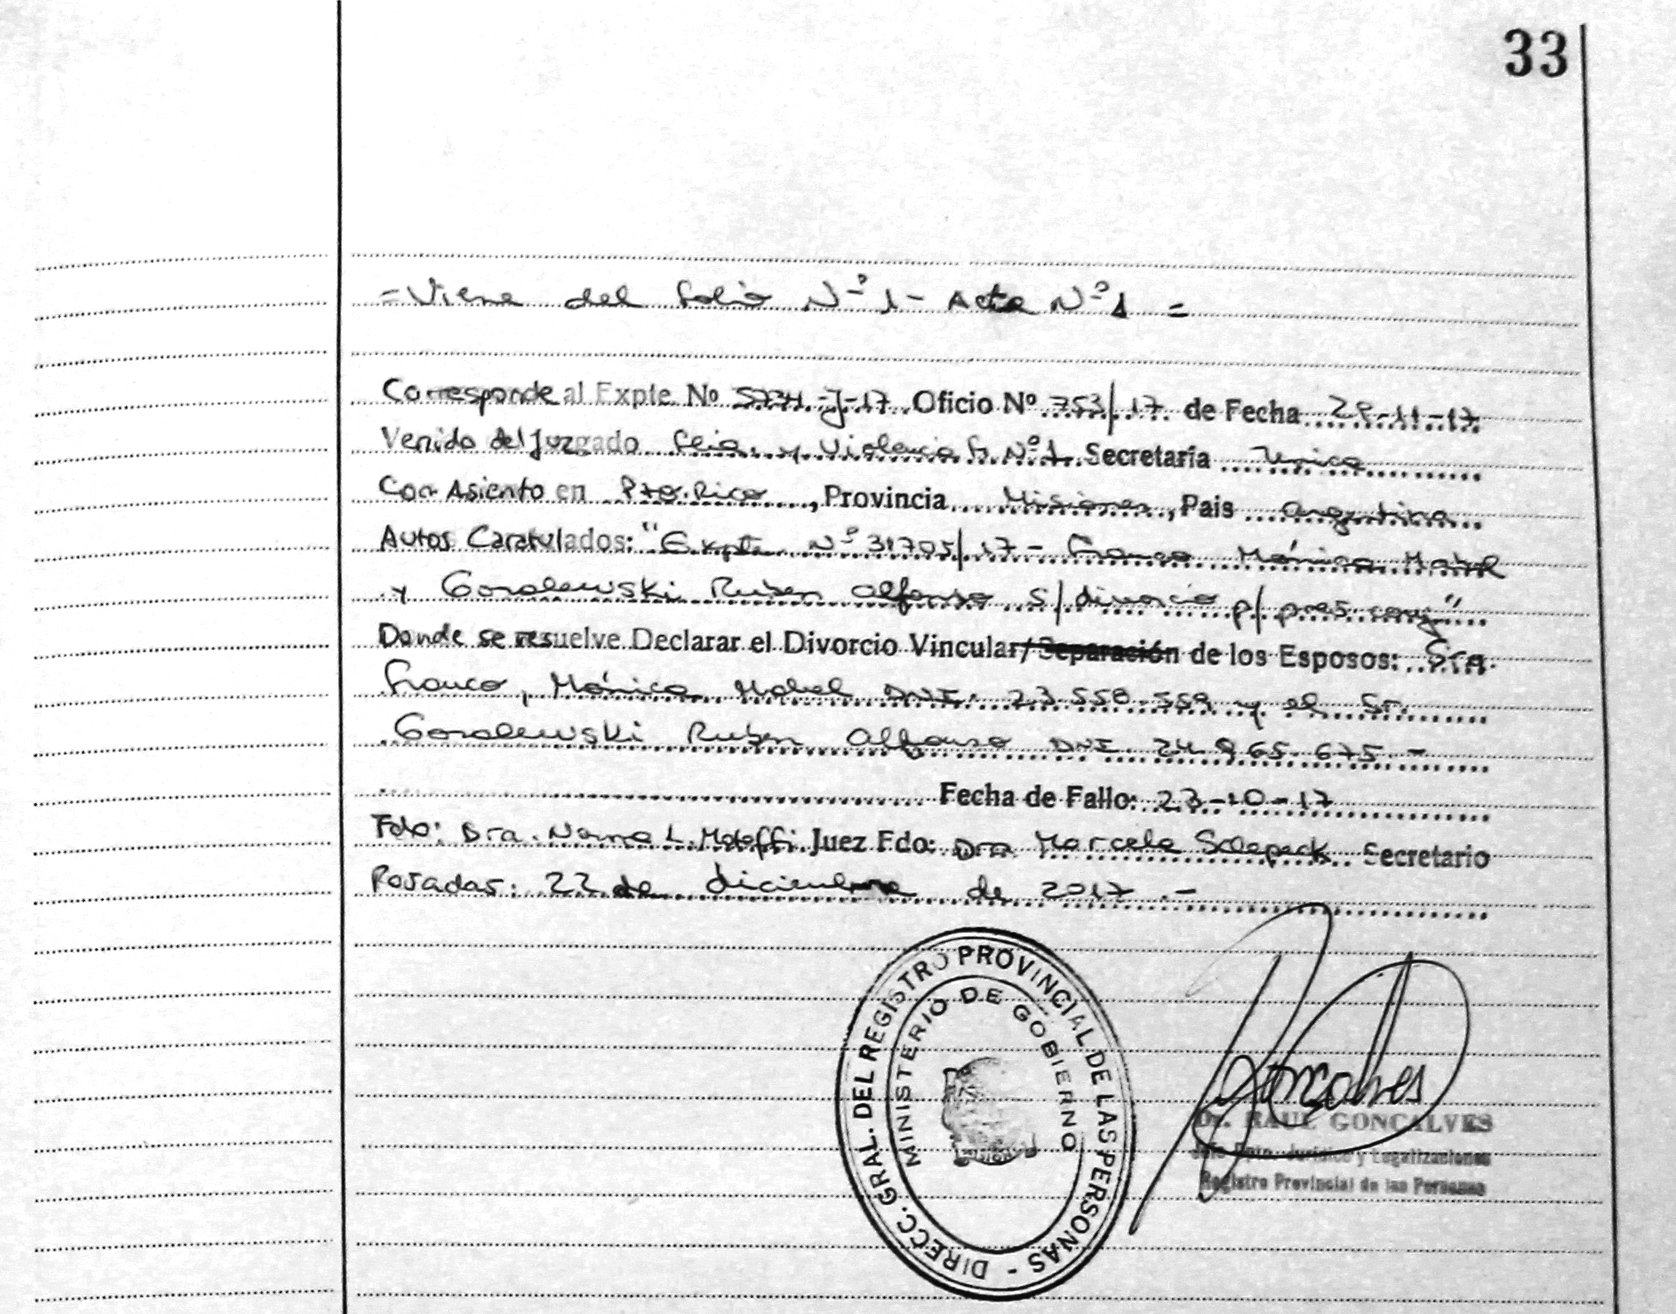 33
= Viene del folio Nº 1 - Acta Nº 1 =
Corresponde al Expte Nº 5734-J-17 Oficio Nº 753/17 de Fecha 29-11-17
Venido del Juzgado Flia. y Violencia F. Nº 1 Secretaría Unica
Con Asiento en Pto. Rico, Provincia Misiones, País Argentina
Autos Caratulados: "Expte Nº 31705/17 - Franco Mónica Mabel
y Goralewski Ruben Alfonso s/divorcio p/ pres. conj"
Donde se resuelve Declarar el Divorcio Vincular/Separación de los Esposos: Sra.
Franco, Mónica Mabel DNI. 23.558.559 y el Sr.
Goralewski Ruben Alfonso DNI. 24.965.675 -
Fecha de Fallo: 23-10-17
Fdo: Dra. L. Juez Fdo: Dra Marcela Secretario
Posadas: 22 de diciembre de 2017 -
DIRECC. GRAL. DEL REGISTRO PROVINCIAL DE LAS PERSONAS -
MINISTERIO DE GOBIERNO
Goncalves
Dr. RAUL GONCALVES
Jefe Dpto. Jurídico y Legalizaciones
Registro Provincial de las Personas